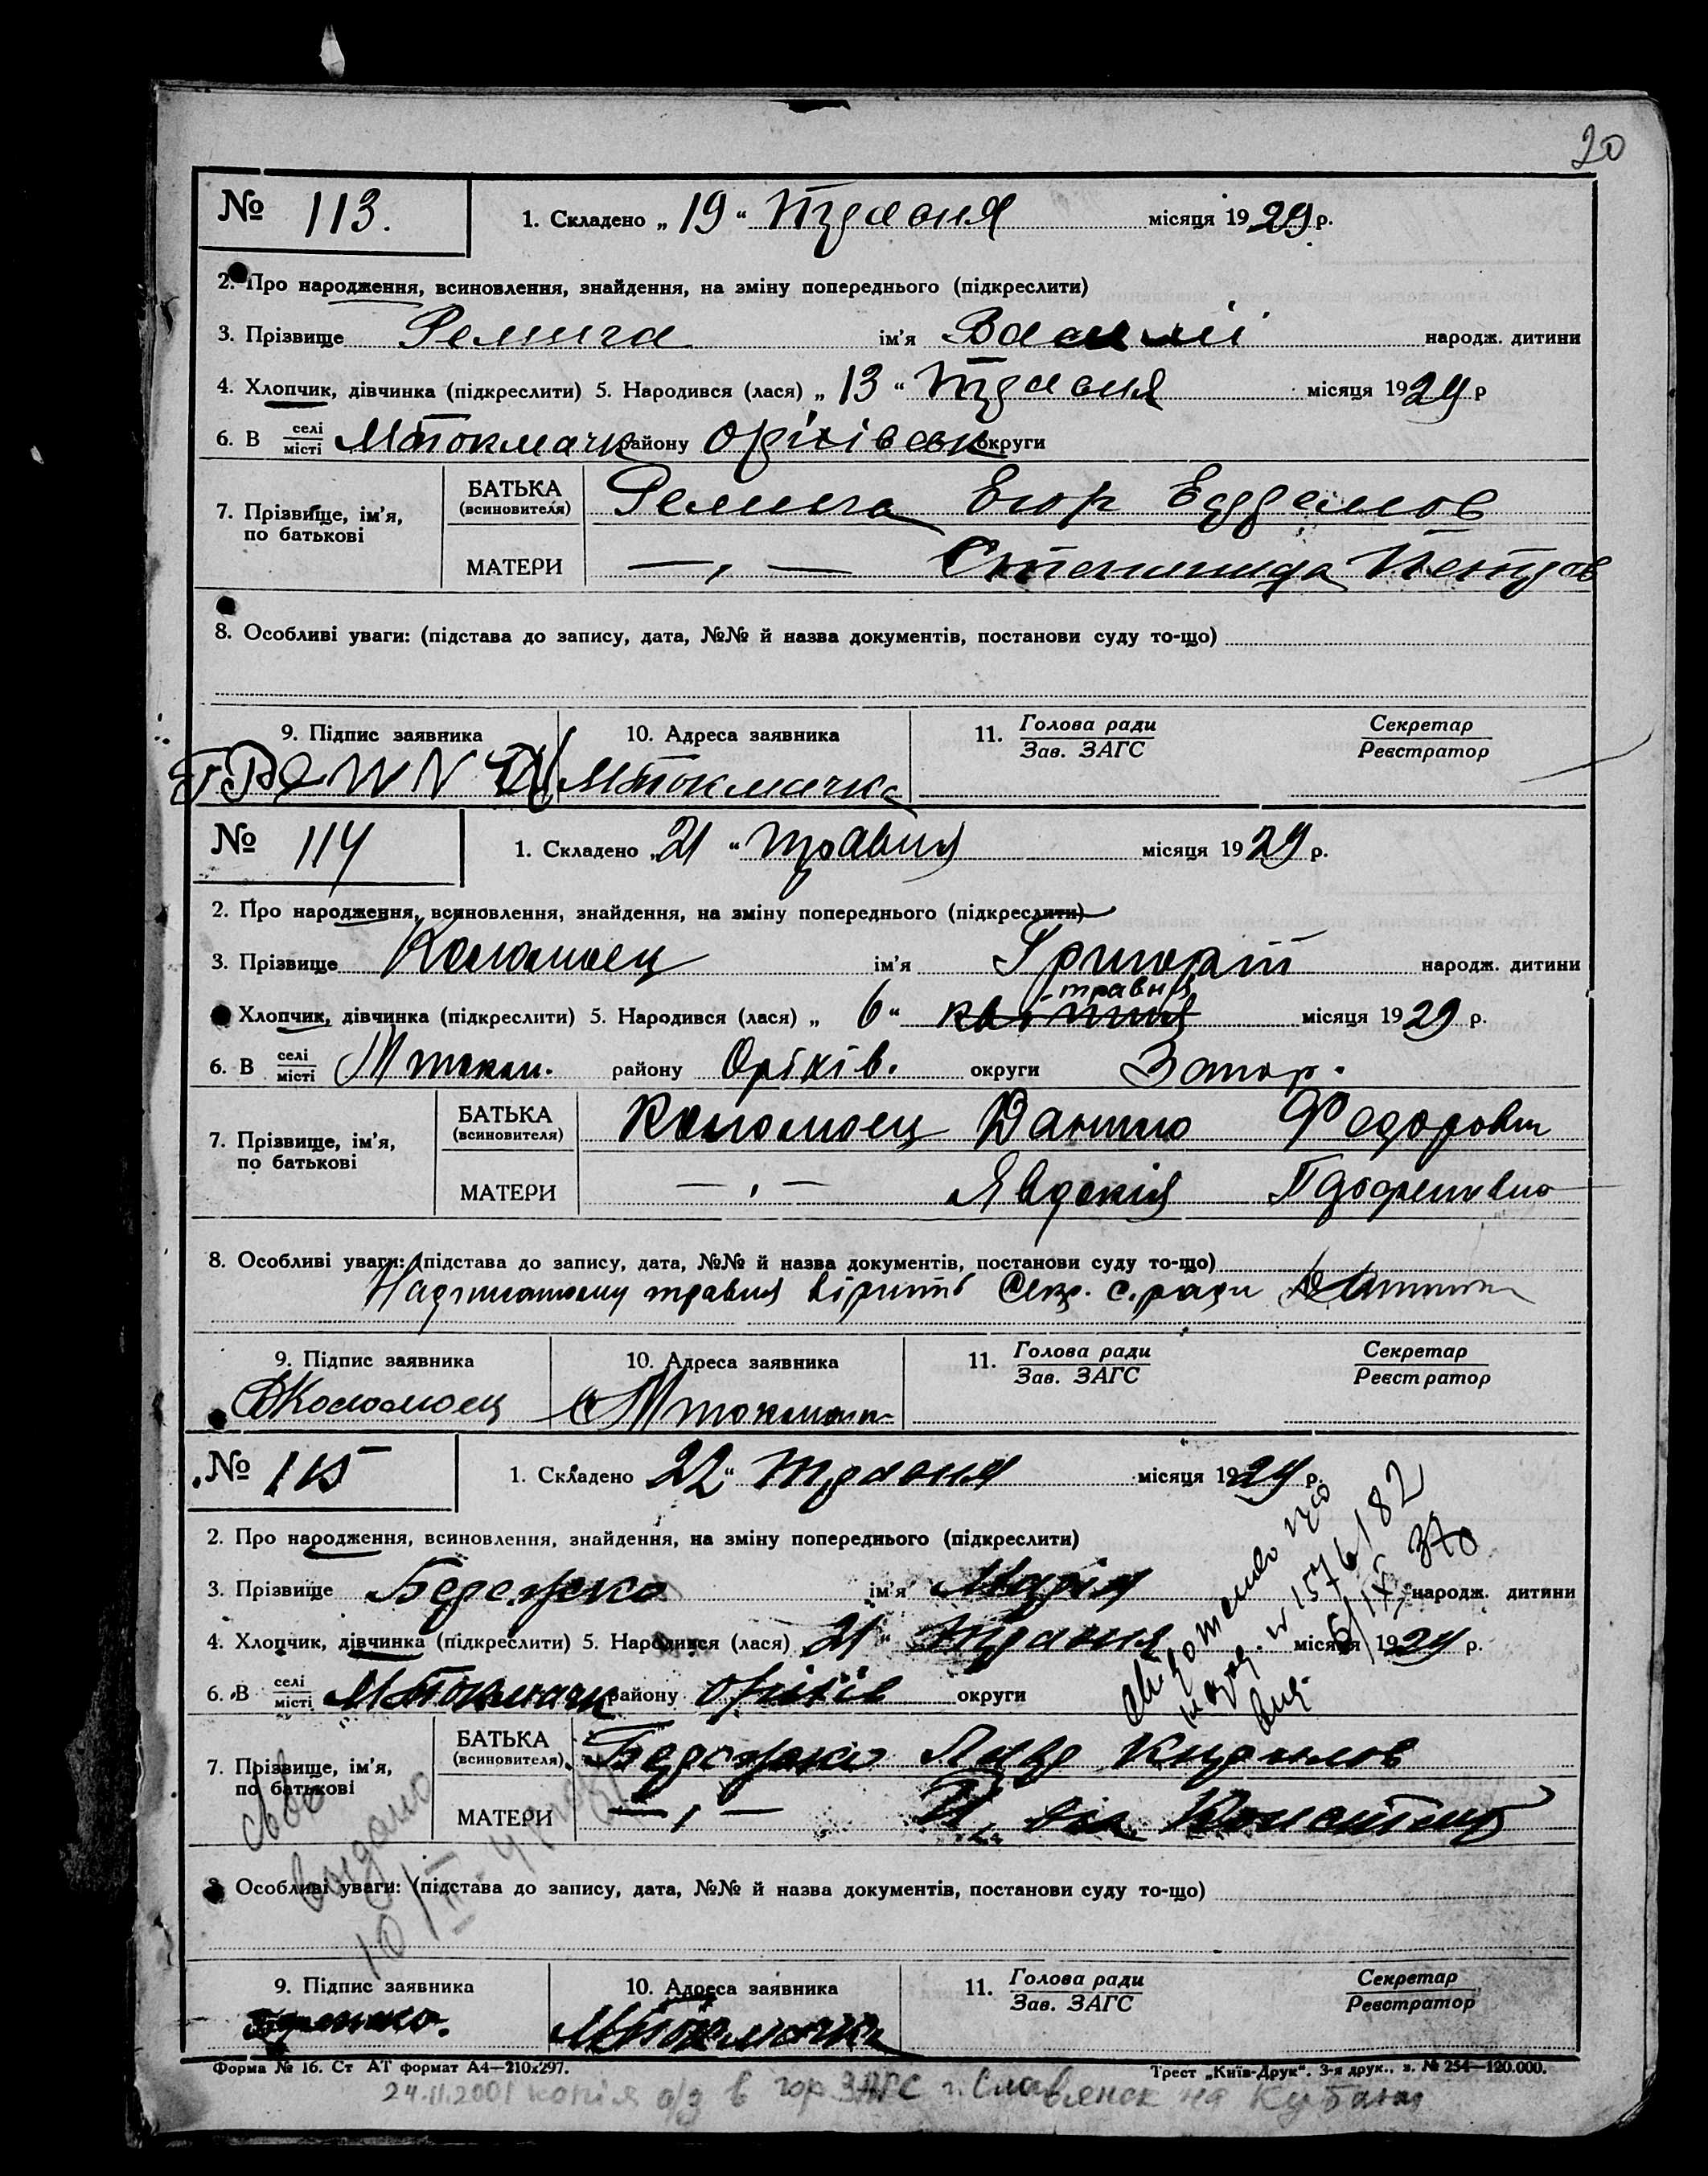 20
№ 113. 1. Складено „ 19 “ Травня місяця 1929 р.
2. Про народження, всиновлення, знайдення, на зміну попереднього (підкреслити)
3. Прізвище Ремига ім'я Василій народж. дитини
4. Хлопчик, дівчинка (підкреслити) 5. Народився (лася) „ 13 “ Травня місяця 1929 р
6. В селі місті МТокмачк району Оріхівськ округи
7. Прізвище, ім'я, по батькові
БАТЬКА (всиновителя) Ремига Егор
МАТЕРИ —„—
8. Особливі уваги: (підстава до запису, дата, №№ й назва документів, постанови суду то-що)
9. Підпис заявника 10. Адреса заявника 11. Голова ради Зав. ЗАГС Секретар Реєстратор
МТокмачка
№ 114 1. Складено „ 21 “ травня місяця 1929 р.
2. Про народження, всиновлення, знайдення, на зміну попереднього (підкреслити)
3. Прізвище Коломоец ім'я Григорій народж. дитини
травня
Хлопчик, дівчинка (підкреслити) 5. Народився (лася) „ 6 “ квітня місяця 1929 р.
6. В селі місті М токм. району Оріхів. округи Запор.
7. Прізвище, ім'я, по батькові
БАТЬКА (всиновителя) Коломоец Данило Федорович
МАТЕРИ —„— Явдокія
8. Особливі уваги: (підстава до запису, дата, №№ й назва документів, постанови суду то-що)
Надписаному травня вірить Секр. с. ради
9. Підпис заявника 10. Адреса заявника 11. Голова ради Зав. ЗАГС Секретар Реєстратор
ДКоломоец
№ 115 1. Складено 22 “ Травня місяця 1929 р.
2. Про народження, всиновлення, знайдення, на зміну попереднього (підкреслити)
3. Прізвище Бережко ім'я Марія народж. дитини
4. Хлопчик, дівчинка (підкреслити) 5. Народився (лася) 21 “ Травня місяця 1929 р.
6. В селі місті МТокмачк району Оріхів округи
7. Прізвище, ім'я, по батькові
БАТЬКА (всиновителя) Бережко Кирилов
МАТЕРИ —„—
8 Особливі уваги: (підстава до запису, дата, №№ й назва документів, постанови суду то-що)
9. Підпис заявника 10. Адреса заявника 11. Голова ради Зав. ЗАГС Секретар Реєстратор
МТокмачка
Форма № 16. Ст АТ формат А4—210х297. Трест „Київ-Друк“. 3-я друк., з. № 254—120.000.
24.11.2001 копія а/з в гор ЗАГС г. Славянск на Кубани